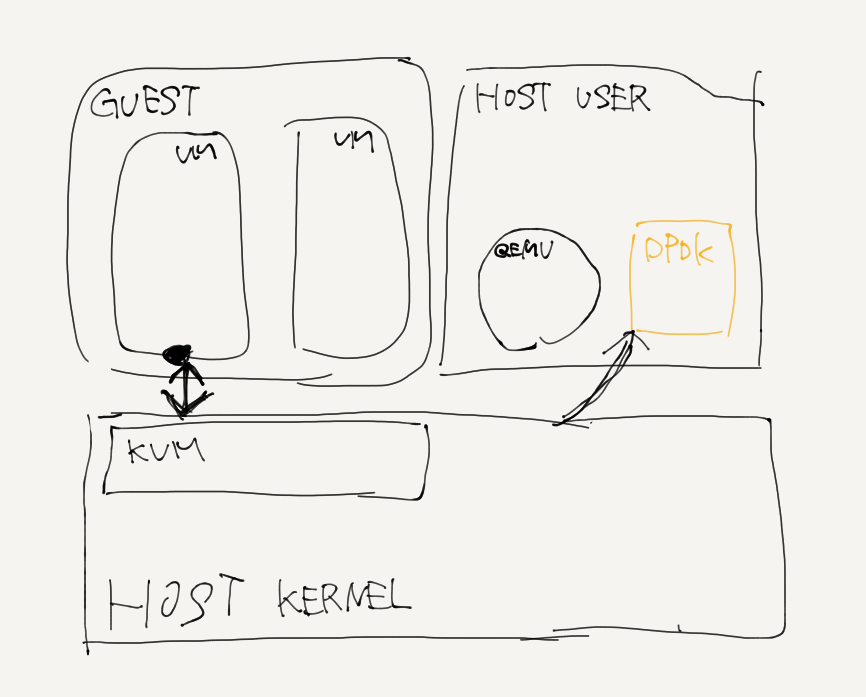 GUEST
VM
VM
HOST USER
QEMU
DPDK
KVM
HOST KERNEL